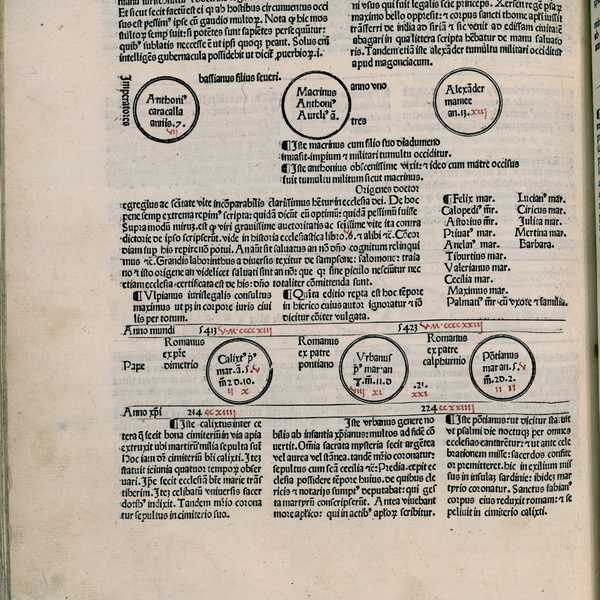 Et si cut sicit factū est eī q̄ ab hostibus circumventus occi
sus est pessim⁹ ipse cū gaudio multoꝝ. Nota q̄ hic mos
stultoꝝ semp fuit: sī potētes sunt sapiētes persequūtur:
quib⁹ sublatis neccesse ē vt ipsi quoqꝫ peant. Solus em̄
intelligens gubernacula possidebit vt dicit̄ puerbioꝝ.i.
maximo bello oppressit: ⁊ corpus sancti thome apl̄i iussit
trāsferri de india an siriā ⁊ sic venit ad edissam ciuitatē
abagari in qua littera scripta hēbatur de manu saluato
ris. Tandem etiā iste alexāder tumultu militari occiditur
apud magonciacum.
Imperatores
bassianus filius seueri.
Anthoni⁹
caracalla
annis.7.
vii
Macrinus
Anthoni⁹
Aureli⁹ ā.
anno vno
tres
Alexāder
mamee
an.13. xiij
¶Iste macrinus cum filio suo diadumeno
inuasit impiū ⁊ militari tumultu occiditur.
¶Iste anthonius obscenissime vixit: ⁊ ideo cum matre occisus
fuit tumultu militum sicut macrinus.
Origenes doctor
egregius ac sctātate vite incōparabilis clarissimus hētur in ecclesia dei. De hoc
pene semp extrema repim⁹ scripta: quidā dicūt eū optimū: quidā pessimū fuisse
Supra modū miruꝫ. est q̄ viri grauissime auctoritatis ac
dictorie de ipso scripserūt. vide in historia ecclesiastica libro.6. ⁊ alibi ⁊c̄.
diam sup his repire nō potui. An aūt sit saluatus an nō dn̄o cognitum relinqui
mus ⁊c̄. Grandis laborintbus a diuersis texitur de sampsone: salomone: traia
no ⁊ isto origene an videlicet saluari sint an nō: que qꝫ sine piculo nesciūtur nec
etiam ecclesia certificata est de his: dn̄o totaliter cōmittenda sunt.
¶Felix mar.
Calopedi⁹ m̄r.
Astorius m̄r.
Priuat⁹ mar.
Anelin⁹ mar.
Tiburtius mar.
Valerianus mar.
Cecilia mar.
Maximus mar.
Palmati⁹ m̄r. cū vxore ⁊ familia.
Lucian⁹ mar.
Ciricus mar.
Julita mar.
Mertina mar.
Barbara.
¶Vlpianus iurislegalis consultus
maximus vt pꝫ in corpore iuris ciui
lis per totum.
¶Quīta editio repta est hoc tēpore
in hierico cuius autor ignoratur ⁊ iō
dicitur cōiter vulgata.
Anno mundi 5413 v.M.ccccxiij 5423 v.M.ccccxxiij
Pape
Romanus
ex pr̄e
dimetrio
Calixt⁹ p̄⁹
mar.ā.5. v
m̄.2 d.10.
ii x
Romanus
ex patre
pontiano
Vrbanus
p̄⁹ mar an
m̄.11.d
.21.
xxi
Romanus
ex patre
calphurnio
Pōtianus
mar.an.5. v
m̄.2 d.2.
ii ii
Anno xp̄i 214 ccxiiij 224 ccxxiiij
¶Iste calixtus inter ce
tera q̄ fecit bona cimiteriū in via apia
extruxit vbi martirū milia sepulta sūt
Hoc iam dō cimiteriū dn̄i calixti. Iteꝫ
statuit ieiunia quatuor tempoꝝ obser
uari. Ip̄se fecit ecclesiā bt̄e marie trās
tiberim. Iteꝫ celibatū vniuersis sacer
dotib⁹ indixit. Tandem m̄rio corona
tur sepultus in cimiterio suo.
¶Iste vrbanus genere no
bilis ab infantia xp̄ianus: multos ad fidē cō
uertit. Omnia sacrata mysteria fecit argētea
vel aurea vel stānea. tandē m̄rio coronatur:
sepultus cum scā cecilia ⁊c̄: Predia cepit ec
clesia possidere tēpore huius, de quibus cle
ricis ⁊ notarijs sumpt⁹ deputabat: qui ges
ta martyrū conscriperūt. Antea viuebant
more apl̄ico: qui in actib⁹ apl̄oꝝ scribitur.
¶Iste pōtianus: vt dicitur statuit
vt psalmi die noctuqꝫ per omnes
ecclesias cantarētur: ⁊ vt ante cele
brationem misse: sacerdos confite
or premitteret. hic in exilium mis
sus in insulā sardinie: ibideꝫ mar
tyrio coronatur. Sanctus fabian⁹
corpus eius reduxit romam: ⁊ se
peliuit in cimiterio calixti.